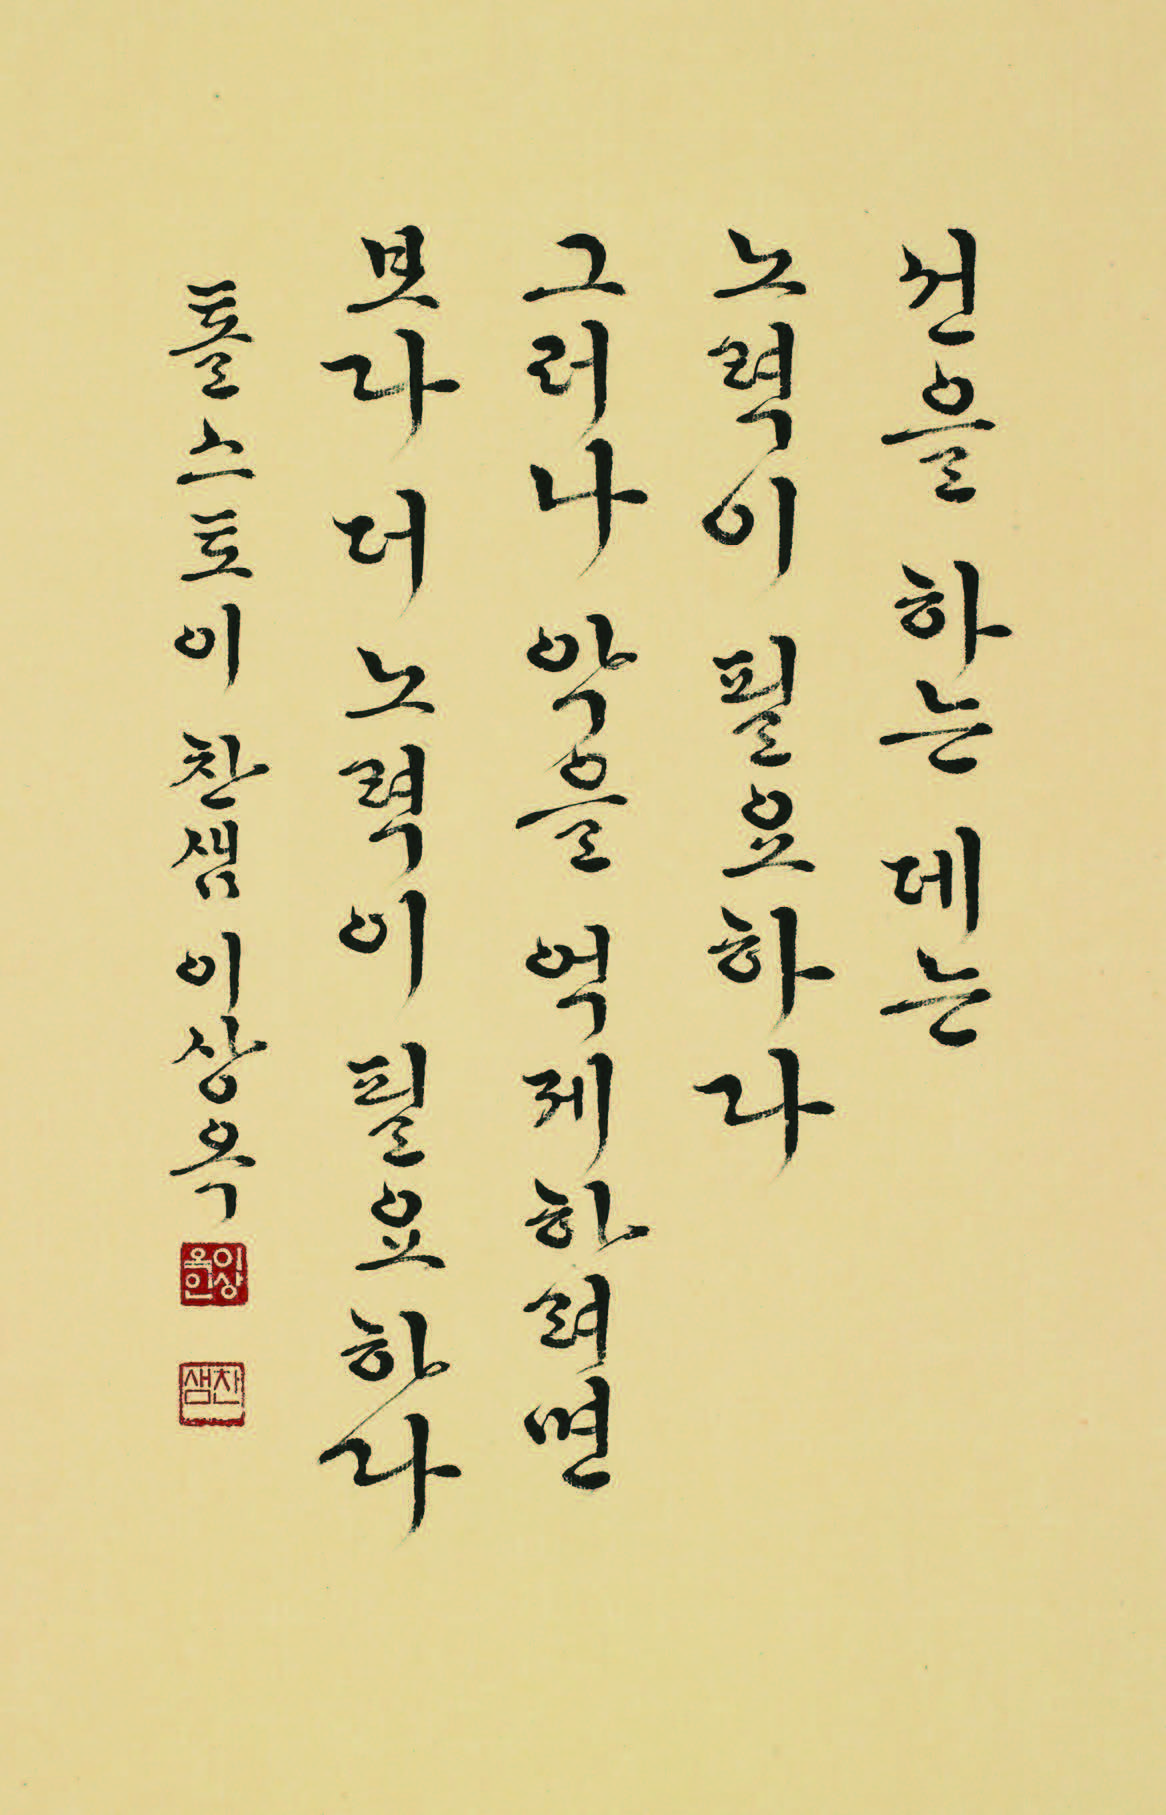 선을 하는 데는
노력이 필요하다
그러나 악을 억제하려면
보다 더 노력이 필요하다
톨스토이 찬샘 이상옥
이상옥인
찬샘